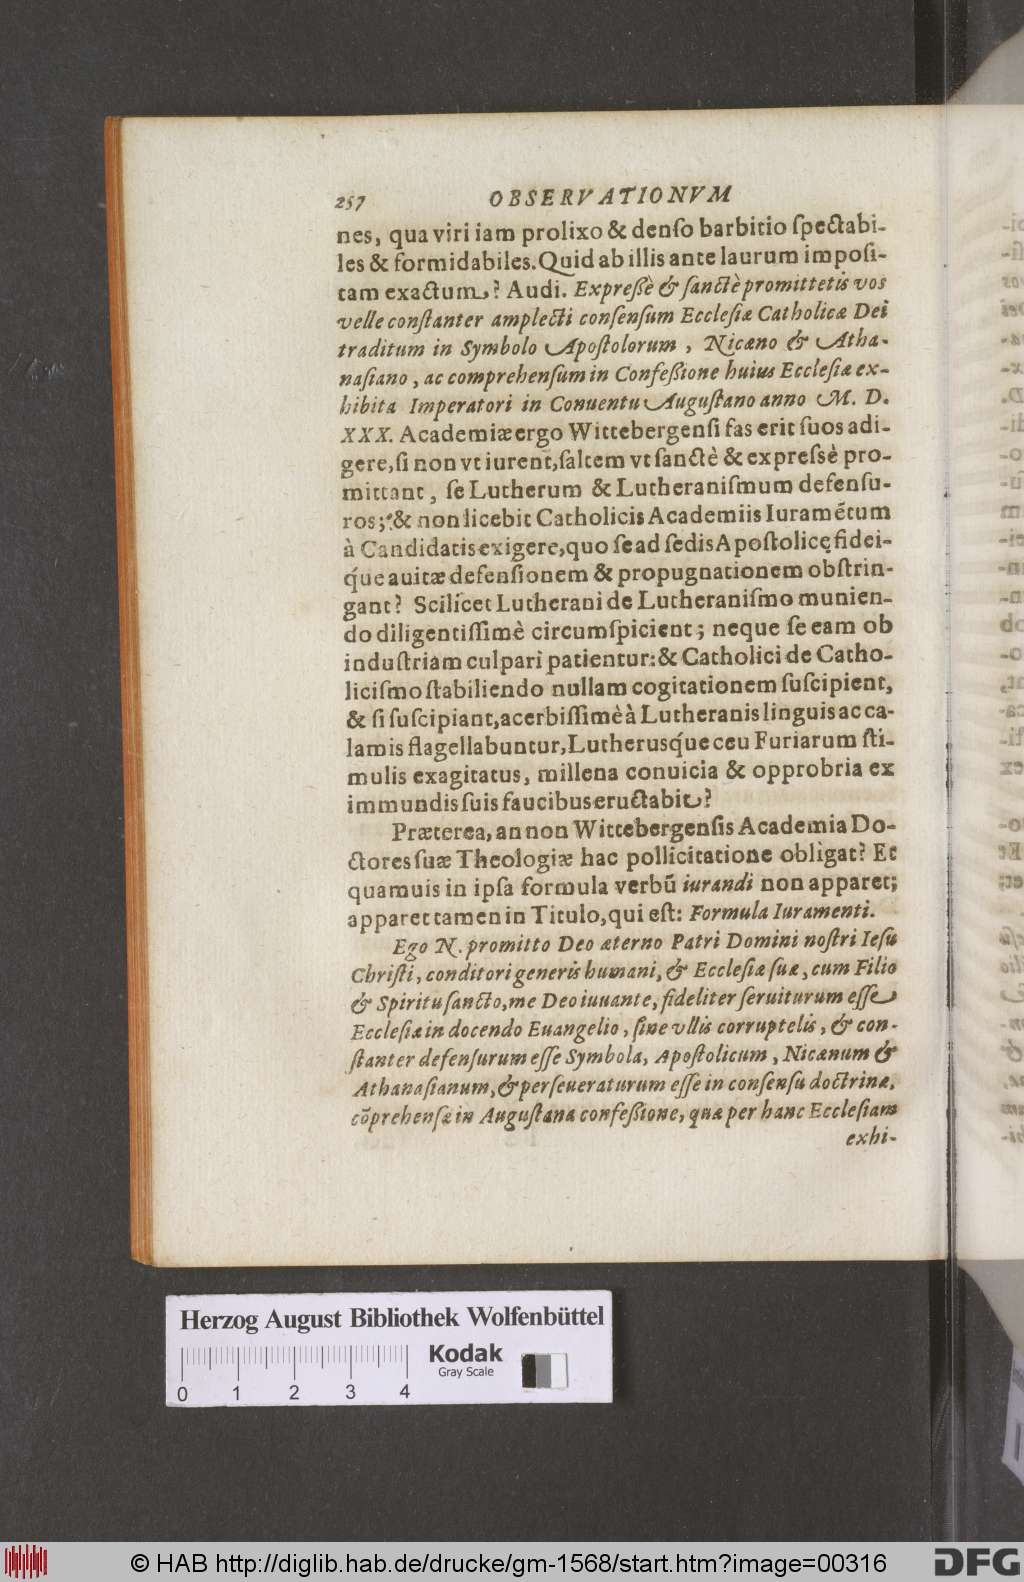 257 OBSERVATIONVM
nes, qua viri iam prolixo & denſo barbitio ſpectabi-
les & formidabiles. Quid ab illis ante laurum impoſi-
tam exactum? Audi. Expreßè & ſanctè promittetis vos
velle conſtanter amplecti conſenſum Eccleſiæ Catholicæ Dei
traditum in Symbolo Apoſtolorum, Nicæno & Atha-
naſiano, ac comprehenſum in Confeßione huius Eccleſiæ ex-
hibita Imperatori in Conuentu Auguſtano anno M. D.
XXX. Academiæ ergo Wittebergenſi fas erit ſuos adi-
gere, ſi non vt iurent, ſaltem vt ſanctè & expreſsè pro-
mittant, ſe Lutherum & Lutheraniſmum defenſu-
ros; & non licebit Catholicis Academiis Iuramẽtum
à Candidatis exigere, quo ſe ad ſedis Apoſtolicę fidei-
q́ue auitæ defenſionem & propugnationem obſtrin-
gant? Scilicet Lutherani de Lutheraniſmo munien-
do diligentiſſimè circumſpicient; neque ſe eam ob
induſtriam culpari patientur: & Catholici de Catho-
liciſmo ſtabiliendo nullam cogitationem ſuſcipient,
& ſi ſuſcipiant, acerbiſſimè à Lutheranis linguis ac ca-
lamis flagellabuntur, Lutherusq́ue ceu Furiarum ſti-
mulis exagitatus, millena conuicia & opprobria ex
immundis ſuis faucibus eructabit?
Præterea, an non Wittebergenſis Academia Do-
ctores ſuæ Theologiæ hac pollicitatione obligat? Et
quamuis in ipſa formula verbũ iurandi non apparet;
apparet tamen in Titulo, qui eſt: Formula Iuramenti.
Ego N. promitto Deo æterno Patri Domini noſtri Ieſu
Chriſti, conditori generis humani, & Eccleſiæ ſuæ, cum Filio
& Spiritu ſancto, me Deo iuuante, fideliter ſeruiturum eſſe
Eccleſiæ in docendo Euangelio, ſine vllis corruptelis, & con-
ſtanter defenſurum eſſe Symbola, Apoſtolicum, Nicænum &
Athanaſianum, & perſeueraturum eſſe in conſenſu doctrinæ,
cõprehenſæ in Auguſtana confeßione, quæ per hanc Eccleſiam
exhi-
Herzog August Bibliothek Wolfenbüttel
Kodak
Gray Scale
0 1 2 3 4
© HAB http://diglib.hab.de/drucke/gm-1568/start.htm?image=00316
DFG